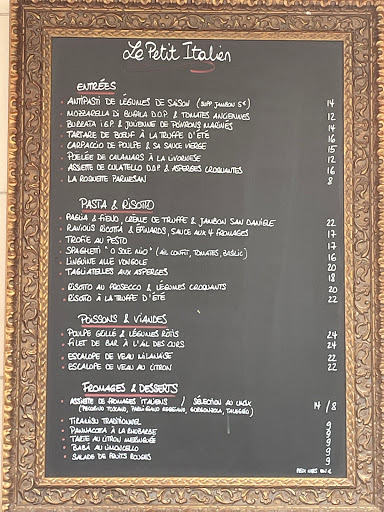 Le Petit Italien
ENTRÉES
- ANTIPASTI DE LÉGUMES DE SAISON (SUPP JAMBON 5€) 14
- MOZZARELLA DI BUFALA D.O.P & TOMATES ANCIENNES 12
- BURRATA I.G.P & JULIENNE DE POIVRONS MARINÉS 14
- TARTARE DE BŒUF À LA TRUFFE D'ÉTÉ 16
- CARPACCIO DE POULPE & SA SAUCE VIERGE 15
- POELÉE DE CALAMARS À LA LIVORNESE 12
- ASSIETTE DE CULATELLO D.O.P & ASPERGES CROQUANTES 16
- LA ROQUETTE PARMESAN 8
PASTA & RISOTTO
- PAGLIA & FIENO, CRÈME DE TRUFFE & JAMBON SAN DANIELE 22
- RAVIOLIS RICOTTA & ÉPINARDS, SAUCE AUX 4 FROMAGES 17
- TROFIE AU PESTO 17
- SPAGHETTI "O SOLE MIO" (AIL CONFIT, TOMATES, BASILIC) 16
- LINGUINE ALLE VONGOLE 20
- TAGLIATELLES AUX ASPERGES 18
- RISOTTO AU PROSECCO & LÉGUMES CROQUANTS 20
- RISOTTO À LA TRUFFE D'ÉTÉ 22
POISSONS & VIANDES
- POULPE GRILLÉ & LÉGUMES RÔTIS 24
- FILET DE BAR À L'AIL DES OURS 24
- ESCALOPE DE VEAU MILANAISE 22
- ESCALOPE DE VEAU AU CITRON 22
FROMAGES & DESSERTS
- ASSIETTE DE FROMAGES ITALIENS / SÉLECTION AU CHOIX 14 / 8
(PECORINO TOSCANO, PARMIGIANO REGGIANO, GORGONZOLA, TALEGGIO)
- TIRAMISU TRADITIONNEL 9
- PANNACOTTA À LA RHUBARBE 9
- TARTE AU CITRON MERINGUÉE 9
- BABA AU LIMONCELLO 9
- SALADE DE FRUITS ROUGES 9
PRIX NETS EN €